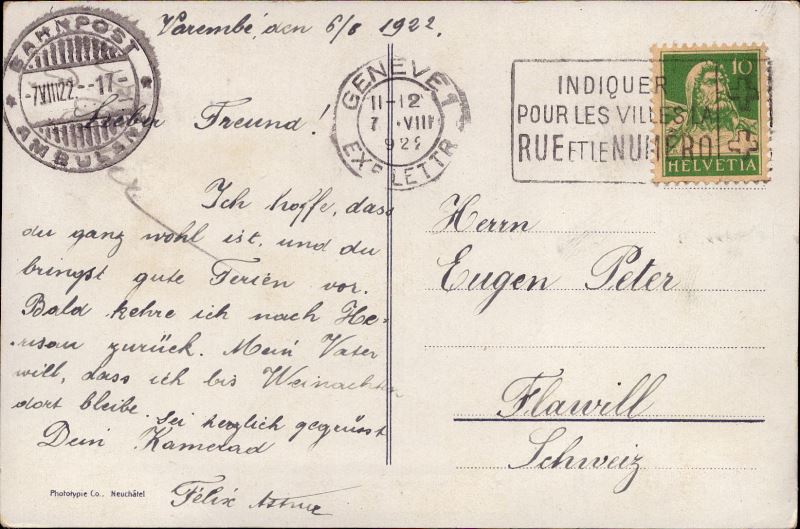 Varembé, den 6/8 1922.
BAHNPOST
-7VIII22.--17-
AMBULANT
GENEVE 1
11-12
7. VIII
192
EXP. LETTR.
INDIQUER
POUR LES VILLES LA
RUE ET LE NUMÉRO
10
HELVETIA
Lieber Freund!
Ich hoffe, dass
du ganz wohl ist, und du
bringst gute Ferien vor.
Bald kehre ich nach He-
risau zurück. Mein Vater
will, dass ich bis Weinachten
dort bleibe. Sei herzlich gegrüsst
Dein Kamerad
Félix
Herrn
Eugen Peter
Flawill
Schweiz
Phototypie Co., Neuchâtel